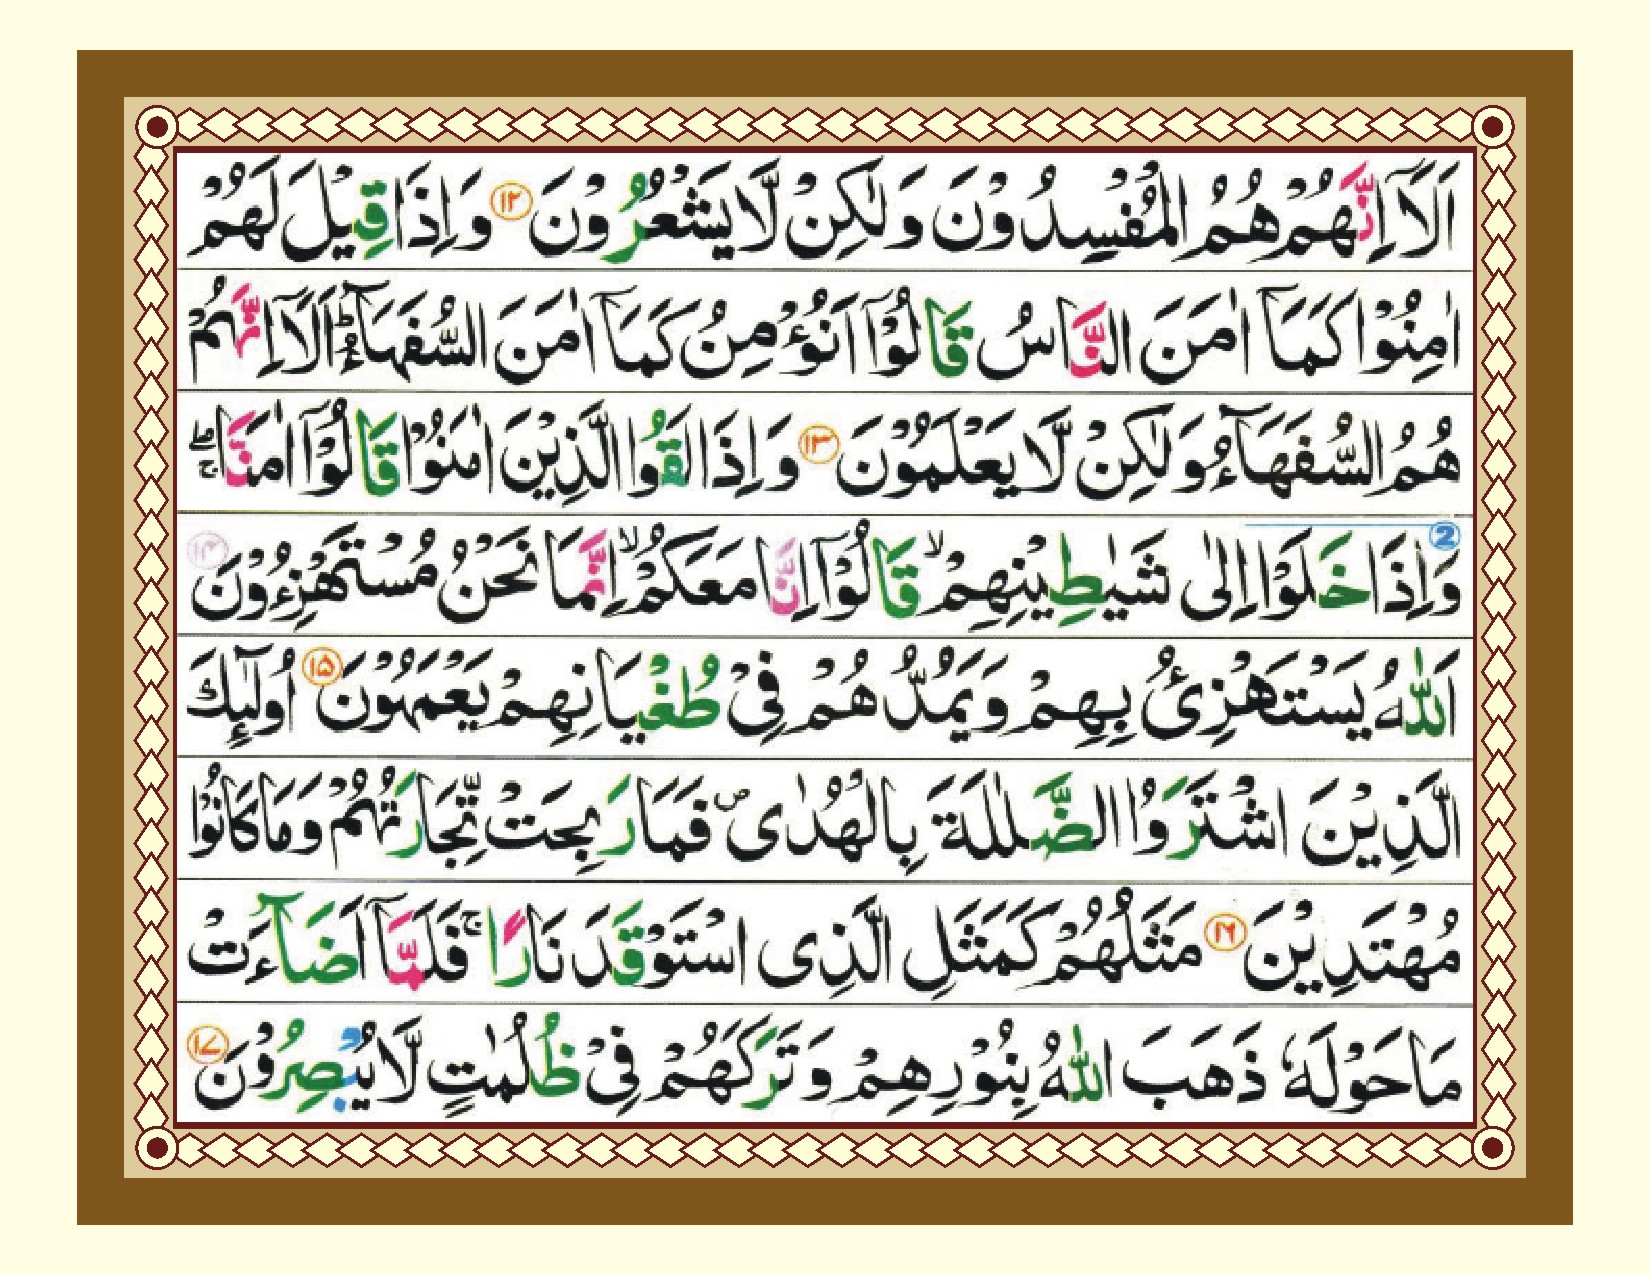 اَلَاۤ اِنَّهُمْ هُمُ الْمُفْسِدُوْنَ وَلٰكِنْ لَّا يَشْعُرُوْنَ ۝۱۲ وَاِذَا قِيْلَ لَهُمْ
اٰمِنُوْا كَمَاۤ اٰمَنَ النَّاسُ قَالُوْۤا اَنُؤْمِنُ كَمَاۤ اٰمَنَ السُّفَهَآءُ ؕ اَلَاۤ اِنَّهُمْ
هُمُ السُّفَهَآءُ وَلٰكِنْ لَّا يَعْلَمُوْنَ ۝۱۳ وَاِذَا لَقُوا الَّذِيْنَ اٰمَنُوْا قَالُوْۤا اٰمَنَّا ۚۖ
2 وَاِذَا خَلَوْا اِلٰى شَيٰطِيْنِهِمْ ۙ قَالُوْۤا اِنَّا مَعَكُمْ ۙ اِنَّمَا نَحْنُ مُسْتَهْزِءُوْنَ ۝۱۴
اَللّٰهُ يَسْتَهْزِئُ بِهِمْ وَيَمُدُّهُمْ فِىْ طُغْيَانِهِمْ يَعْمَهُوْنَ ۝۱۵ اُولٰٓئِكَ
الَّذِيْنَ اشْتَرَوُا الضَّلٰلَةَ بِالْهُدٰى ۖ فَمَا رَبِحَتْ تِّجَارَتُهُمْ وَمَا كَانُوْا
مُهْتَدِيْنَ ۝۱۶ مَثَلُهُمْ كَمَثَلِ الَّذِى اسْتَوْقَدَ نَارًا ۚ فَلَمَّاۤ اَضَآءَتْ
مَا حَوْلَهٗ ذَهَبَ اللّٰهُ بِنُوْرِهِمْ وَتَرَكَهُمْ فِىْ ظُلُمٰتٍ لَّا يُبْصِرُوْنَ ۝۱۷